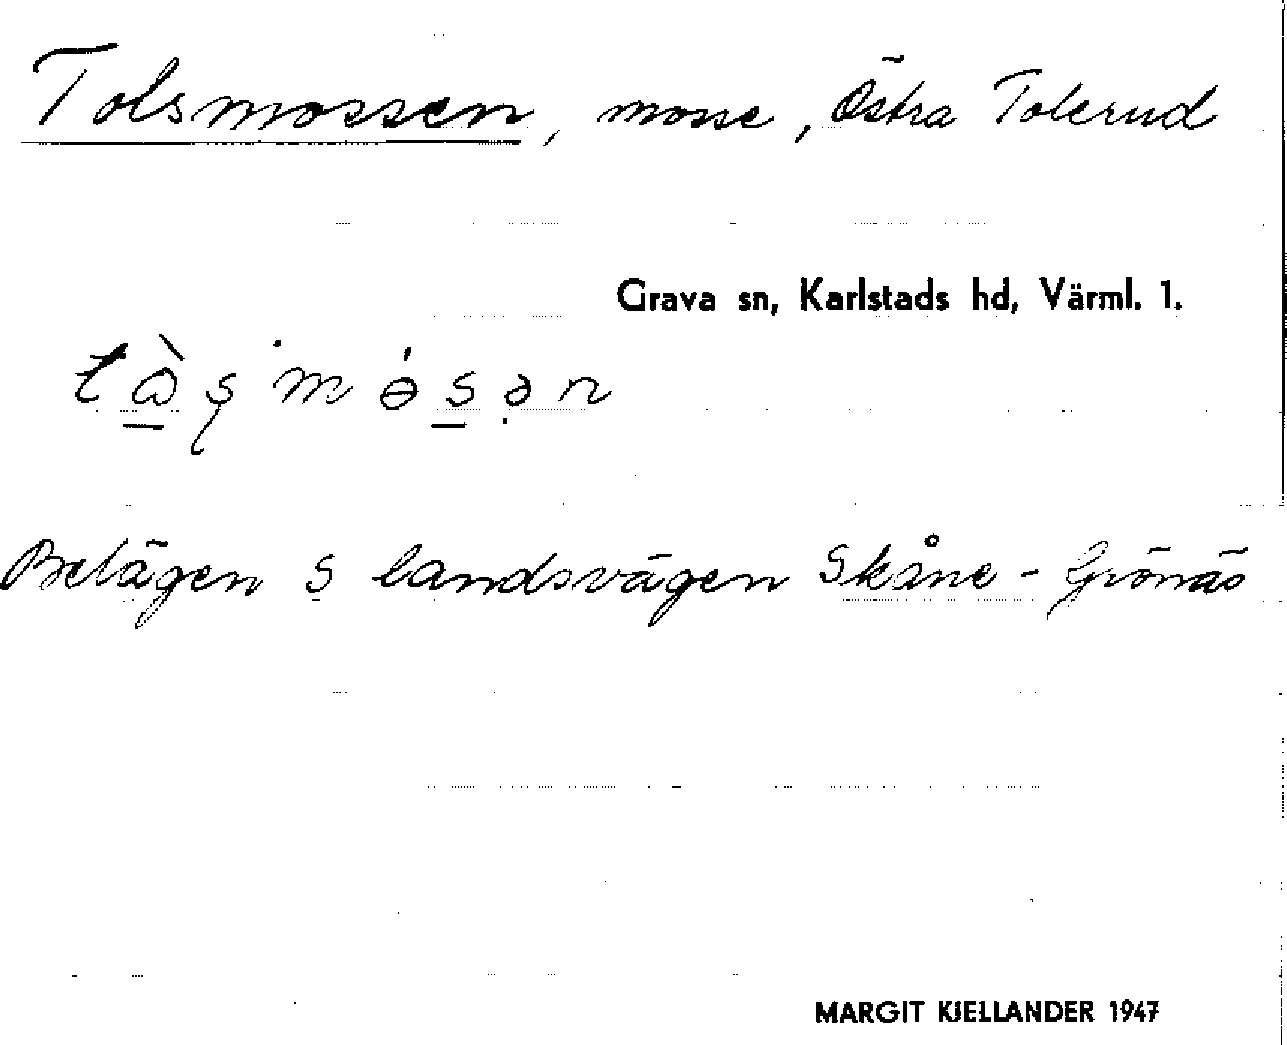 Tolsmossen, mosse, Östra Tolerud
Grava sn, Karlstads hd, Värml. 1.
Belägen S landsvägen Skåne - Grönäs
MARGIT KJELLANDER 1947